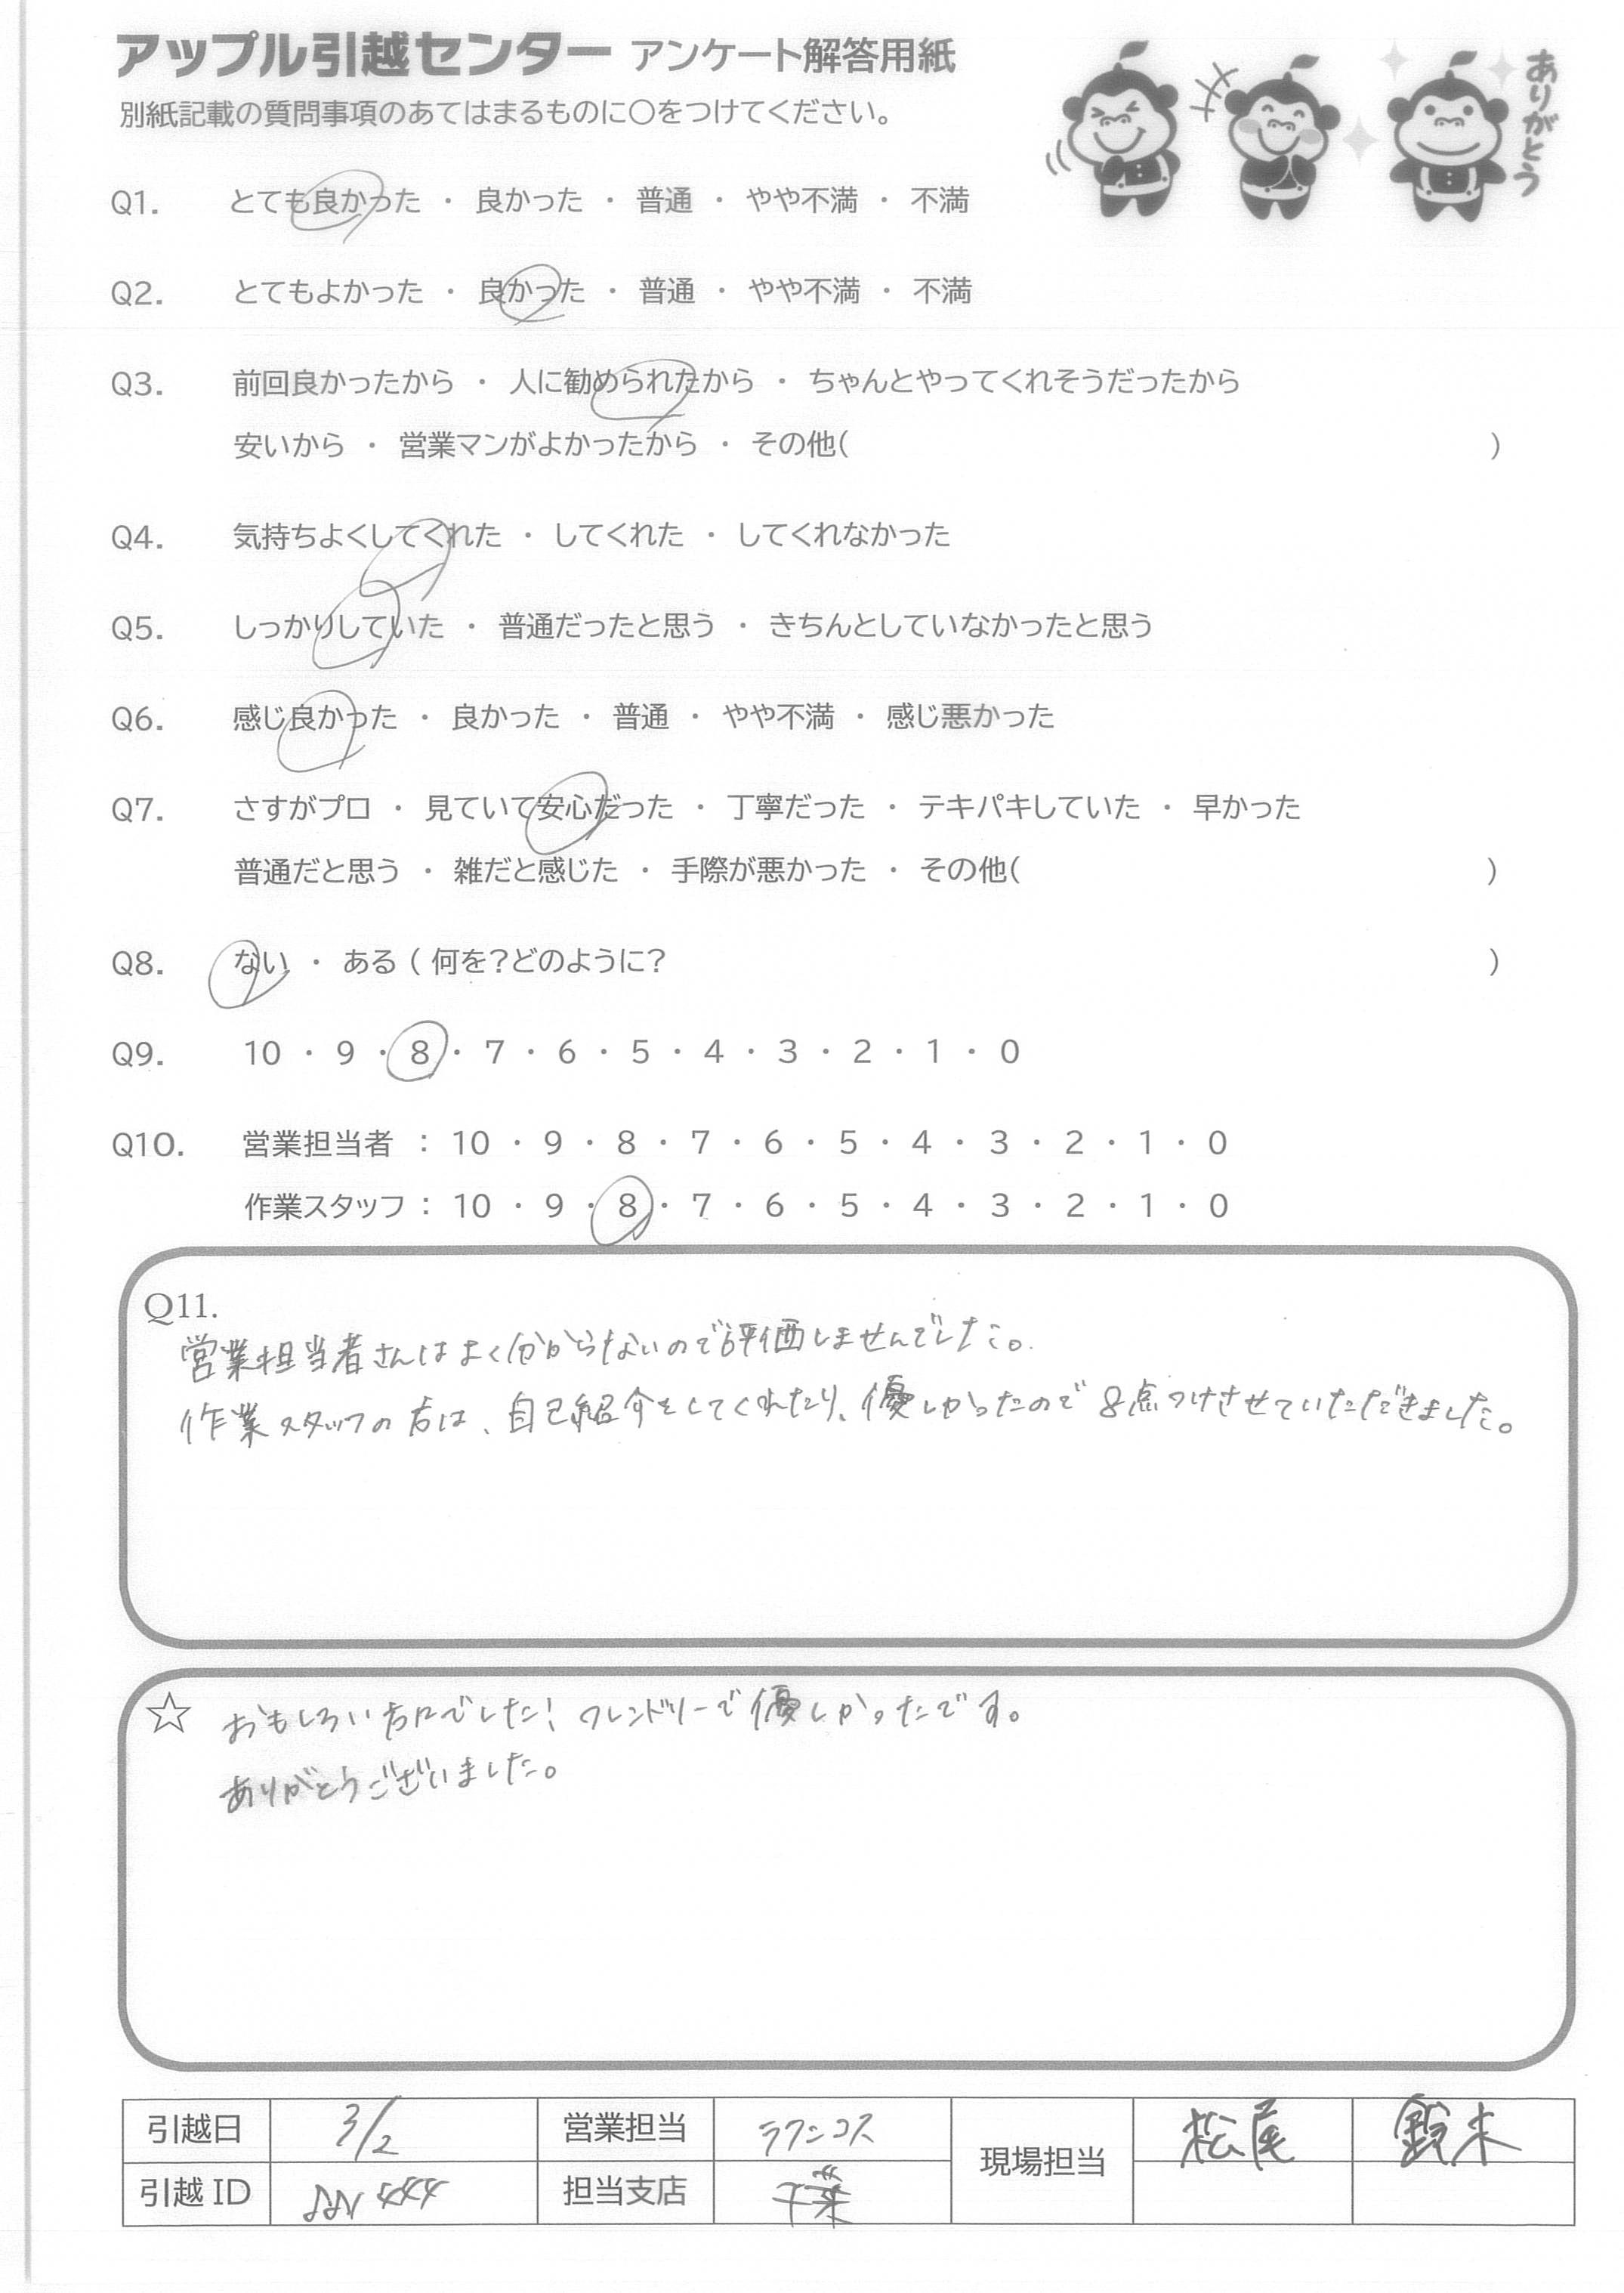 アップル引越センター アンケート解答用紙
別紙記載の質問事項のあてはまるものに〇をつけてください。
ありがとう
Q1. とても良かった ・ 良かった ・ 普通 ・ やや不満 ・ 不満
Q2. とてもよかった ・ 良かった ・ 普通 ・ やや不満 ・ 不満
Q3. 前回良かったから ・ 人に勧められたから ・ ちゃんとやってくれそうだったから
安いから ・ 営業マンがよかったから ・ その他( )
Q4. 気持ちよくしてくれた ・ してくれた ・ してくれなかった
Q5. しっかりしていた ・ 普通だったと思う ・ きちんとしていなかったと思う
Q6. 感じ良かった ・ 良かった ・ 普通 ・ やや不満 ・ 感じ悪かった
Q7. さすがプロ ・ 見ていて安心だった ・ 丁寧だった ・ テキパキしていた ・ 早かった
普通だと思う ・ 雑だと感じた ・ 手際が悪かった ・ その他( )
Q8. ない ・ ある ( 何を?どのように? )
Q9. 10 ・ 9 ・ 8 ・ 7 ・ 6 ・ 5 ・ 4 ・ 3 ・ 2 ・ 1 ・ 0
Q10. 営業担当者 : 10 ・ 9 ・ 8 ・ 7 ・ 6 ・ 5 ・ 4 ・ 3 ・ 2 ・ 1 ・ 0
作業スタッフ : 10 ・ 9 ・ 8 ・ 7 ・ 6 ・ 5 ・ 4 ・ 3 ・ 2 ・ 1 ・ 0
Q11.
営業担当者さんはよく分からないので評価しませんでした。
作業スタッフの方は、自己紹介をしてくれたり、優しかったので8点つけさせていただきました。
☆ おもしろい方々でした! フレンドリーで優しかったです。
ありがとうございました。
引越日 3/2 営業担当 現場担当 松尾 鈴木
引越ID 担当支店 千葉